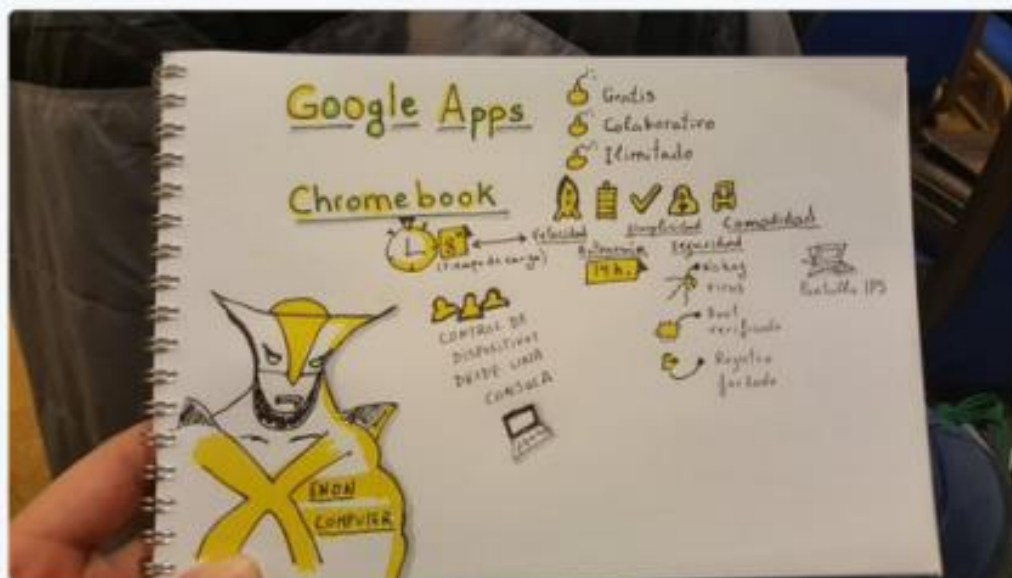 Google Apps
Gratis
Colaborativo
Ilimitado
Chromebook
Velocidad
Simplicidad
Comodidad
8"
(Tiempo de carga)
Autonomía
14 h.
Seguridad
No hay
virus
Boot
verificado
Registro
forzado
Pantalla IPS
CONTROL DE
DISPOSITIVOS
DESDE UNA
CONSOLA
X
ENON
COMPUTER